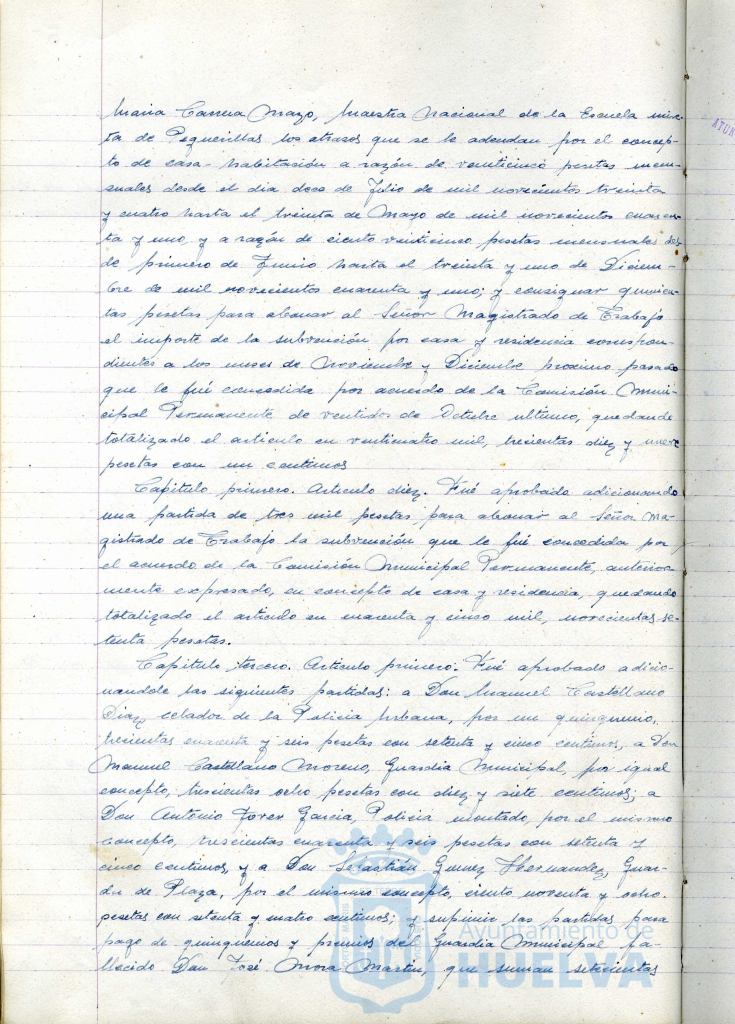 Maria Carrera Mazo, Maestra Nacional de la Escuela mix-
ta de Peguerillas los atrasos que se le adeudan por el concep-
to de casa-habitación a razón de veinticinco pesetas men-
suales desde el dia doce de Julio de mil novecientos treinta
y cuatro hasta el treinta de Mayo de mil novecientos cuaren-
ta y uno y a razón de ciento veinticinco pesetas mensuales des-
de primero de Junio hasta el treinta y uno de Diciem-
bre de mil novecientos cuarenta y uno; y consignar quinien-
tas pesetas para abonar al Señor Magistrado de Trabajo
el importe de la subvención por casa y residencia correspon-
dientes a los meses de Noviembre y Diciembre proximo pasado
que le fué concedida por acuerdo de la Comisión Muni-
cipal Permanente de ventidos de Octubre ultimo, quedando
totalizado el articulo en venticuatro mil, trecientas diez y nueve
pesetas con un centimos
Capitulo primero. Articulo diez. Fué aprobado adicionando
una partida de tres mil pesetas, para abonar al Señor Ma-
gistrado de Trabajo la subvención que le fué concedida por
el acuerdo de la Comisión Municipal Permanente, anterior-
mente expresado, en concepto de casa y residencia, quedando
totalizado el articulo en cuarenta y cinco mil, novecientas se-
tenta pesetas.
Capitulo tercero. Articulo primero. Fué aprobado adicio-
nandole las siguientes partidas: a Don Manuel Castellano
Diaz, celador de la Policia Urbana, por un quinquenio,
trecientas cuarenta y seis pesetas con setenta y cinco centimos, a Don
Manuel Castellano Moreno, Guardia Municipal, por igual
concepto, trescientas ocho pesetas con diez y siete centimos; a
Don Antonio Garcia, Policia montado, por el mismo
concepto, trescientas cuarenta y seis pesetas con setenta y
cinco centimos, y a Don Sebastián Gomez Hernandez, Guar-
da de Plaza, por el mismo concepto, ciento noventa y ocho
pesetas con setenta y cuatro centimos; y suprimir las partidas para
pago de quinquenios y premios del Guardia Municipal fa-
llecido Don José Mora Martin, que suman setecientas
Ayuntamiento de
HUELVA